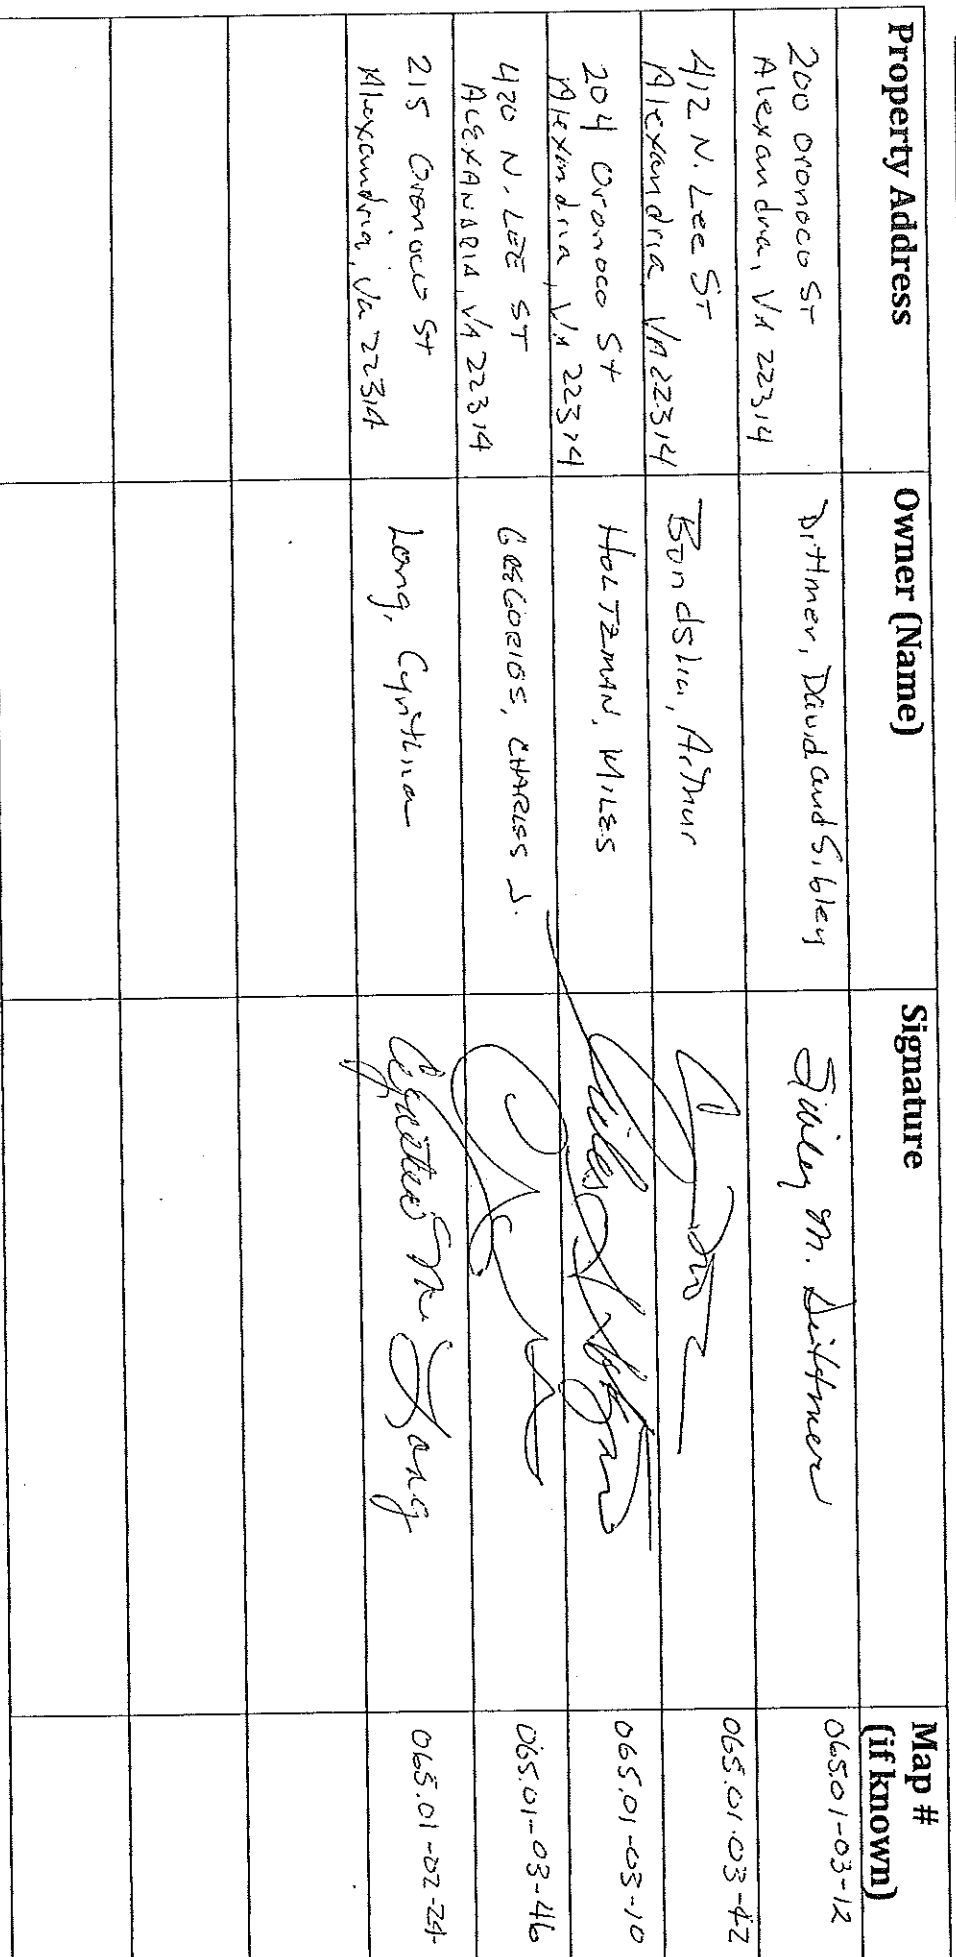 Property Address
Owner (Name)
Signature
Map #
(if known)
200 oronoco ST
Alexandria, VA 22314
Dittmer, David and Sibley
Sibley M. Dittmer
065.01-03-12
412 N. Lee ST
Alexandria VA 22314
Bondshu, Arthur
065.01.03-42
204 Oronoco St
Alexandria, VA 22314
HOLTZMAN, MILES
065.01-03-10
420 N. LEE ST
ALEXANDRIA, VA 22314
GREGORIOS, CHARLES J.
065.01-03-46
215 Oronoco St
Alexandria, Va 22314
Long, Cynthia
Long
065.01-02-24